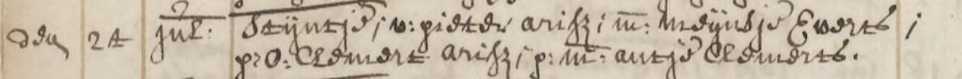 den 24 jul. Stijntje; v: pieter arisz; m̄: meijnsje Everts;
p:o: Clemert arisz; p: m̄: antje Clemerts.